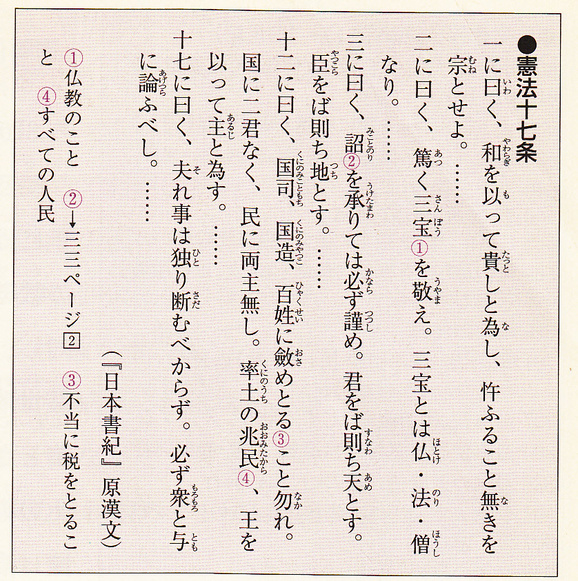 ●憲法十七条
一に曰く、和を以って貴しと為し、忤ふること無きを
宗とせよ。……
二に曰く、篤く三宝①を敬え。三宝とは仏・法・僧
なり。……
三に曰く、詔②を承りては必ず謹め。君をば則ち天とす。
臣をば則ち地とす。……
十二に曰く、国司、国造、百姓に斂めとる③こと勿れ。
国に二君なく、民に両主無し。率土の兆民④、王を
以って主と為す。……
十七に曰く、夫れ事は独り断むべからず。必ず衆と与
に論ふべし。……
(『日本書紀』原漢文)
①仏教のこと ②→三三ページ2 ③不当に税をとるこ
と ④すべての人民